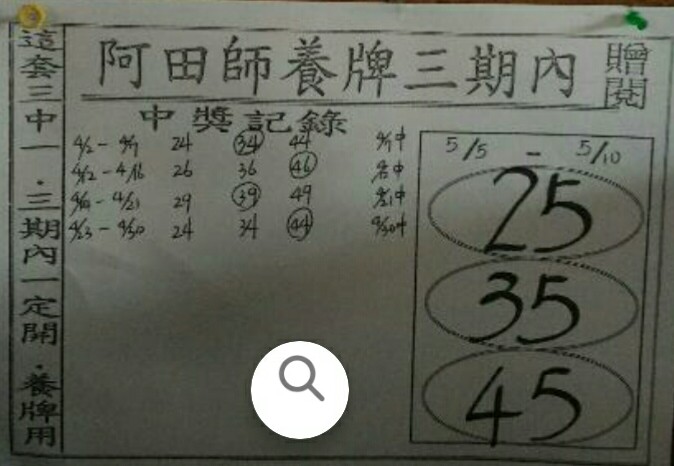 這套三中一．三期內一定開．養牌用
阿田師養牌三期內
贈閱
中獎記錄
4/2 - 4/7 24 34 44 4/7中
4/12 - 4/16 26 36 46 中
- 4/21 29 39 49 4/21中
4/23 - 4/30 24 34 44 4/30中
5/5 - 5/10
25
35
45